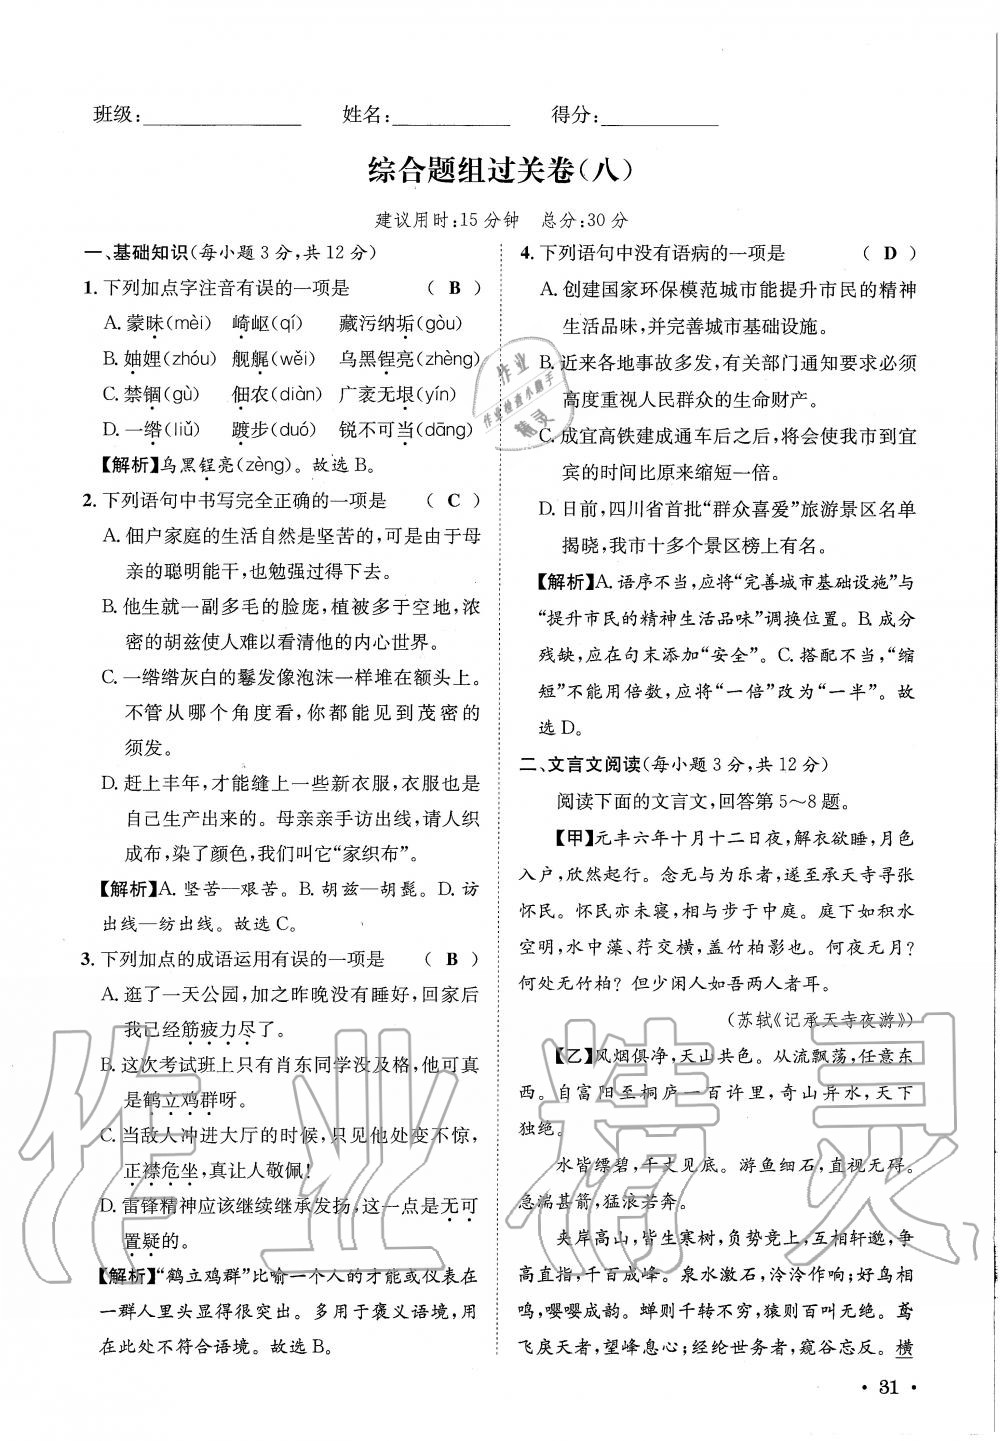 班级:　姓名:　得分:
综合题组过关卷(八)
建议用时:15分钟　总分:30分
一、基础知识(每小题3分,共12分)
1. 下列加点字注音有误的一项是　( B )
A. 蒙昧(mèi)　崎岖(qí)　藏污纳垢(gòu)
B. 妯娌(zhóu)　舰艉(wěi)　乌黑锃亮(zhèng)
C. 禁锢(gù)　佃农(diàn)　广袤无垠(yín)
D. 一绺(liǔ)　踱步(duó)　锐不可当(dāng)
【解析】乌黑锃亮(zèng)。故选B。
2. 下列语句中书写完全正确的一项是　( C )
A. 佃户家庭的生活自然是坚苦的,可是由于母
亲的聪明能干,也勉强过得下去。
B. 他生就一副多毛的脸庞,植被多于空地,浓
密的胡兹使人难以看清他的内心世界。
C. 一绺绺灰白的鬈发像泡沫一样堆在额头上。
不管从哪个角度看,你都能见到茂密的
须发。
D. 赶上丰年,才能缝上一些新衣服,衣服也是
自己生产出来的。母亲亲手访出线,请人织
成布,染了颜色,我们叫它“家织布”。
【解析】A. 坚苦—艰苦。B. 胡兹—胡髭。D. 访
出线—纺出线。故选C。
3. 下列加点的成语运用有误的一项是　( B )
A. 逛了一天公园,加之昨晚没有睡好,回来后
我已经筋疲力尽了。
B. 这次考试班上只有肖东同学没及格,他可真
是鹤立鸡群呀。
C. 当敌人冲进大厅的时候,只见他处变不惊,
正襟危坐,真让人敬佩!
D. 雷锋精神应该继续继承发扬,这一点是无可
置疑的。
【解析】“鹤立鸡群”比喻一个人的才能或仪表在
一群人里头显得很突出。多用于褒义语境,用
在此处不符合语境。故选B。
4. 下列语句中没有语病的一项是　( D )
A. 创建国家环保模范城市能提升市民的精神
生活品味,并完善城市基础设施。
B. 近来各地事故多发,有关部门通知要求必须
高度重视人民群众的生命财产。
C. 成宜高铁建成通车后之后,将会使我市到宜
宾的时间比原来缩短一倍。
D. 日前,四川省首批“群众喜爱”旅游景区名单
揭晓,我市十多个景区榜上有名。
【解析】A. 语序不当,应将“完善城市基础设施”与
“提升市民的精神生活品味”调换位置。B. 成分
残缺,应在句末添加“安全”。C. 搭配不当,“缩
短”不能用倍数,应将“一倍”改为“一半”。故
选D。
二、文言文阅读(每小题3分,共12分)
阅读下面的文言文,回答第5~8题。
【甲】元丰六年十月十二日夜,解衣欲睡,月色
入户,欣然起行。念无与为乐者,遂至承天寺寻张
怀民。怀民亦未寝,相与步于中庭。庭下如积水
空明,水中藻、荇交横,盖竹柏影也。何夜无月?
何处无竹柏?但少闲人如吾两人者耳。
(苏轼《记承天寺夜游》)
【乙】风烟俱净,天山共色。从流飘荡,任意东
西。自富阳至桐庐一百许里,奇山异水,天下
独绝。
水皆缥碧,千丈见底。游鱼细石,直视无碍。
急湍甚箭,猛浪若奔。
夹岸高山,皆生寒树,负势竞上,互相轩邈,争
高直指,千百成峰。泉水激石,泠泠作响;好鸟相
鸣,嘤嘤成韵。蝉则千转不穷,猿则百叫无绝。鸢
飞戾天者,望峰息心;经纶世务者,窥谷忘反。横
· 31 ·
作业精灵